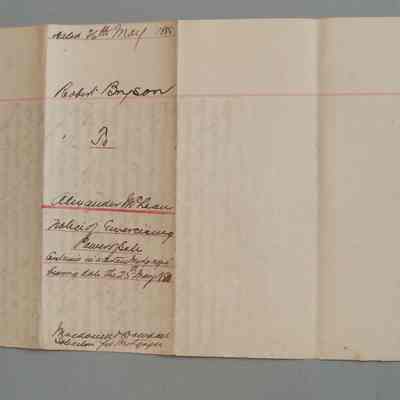 Dated 26th May 188
Robert Bryson
To
Alexander McLean
Notice of Exercising
Power of Sale
contained in a certain Mortgage
bearing date the 25th May
Solicitors for Mortgagee